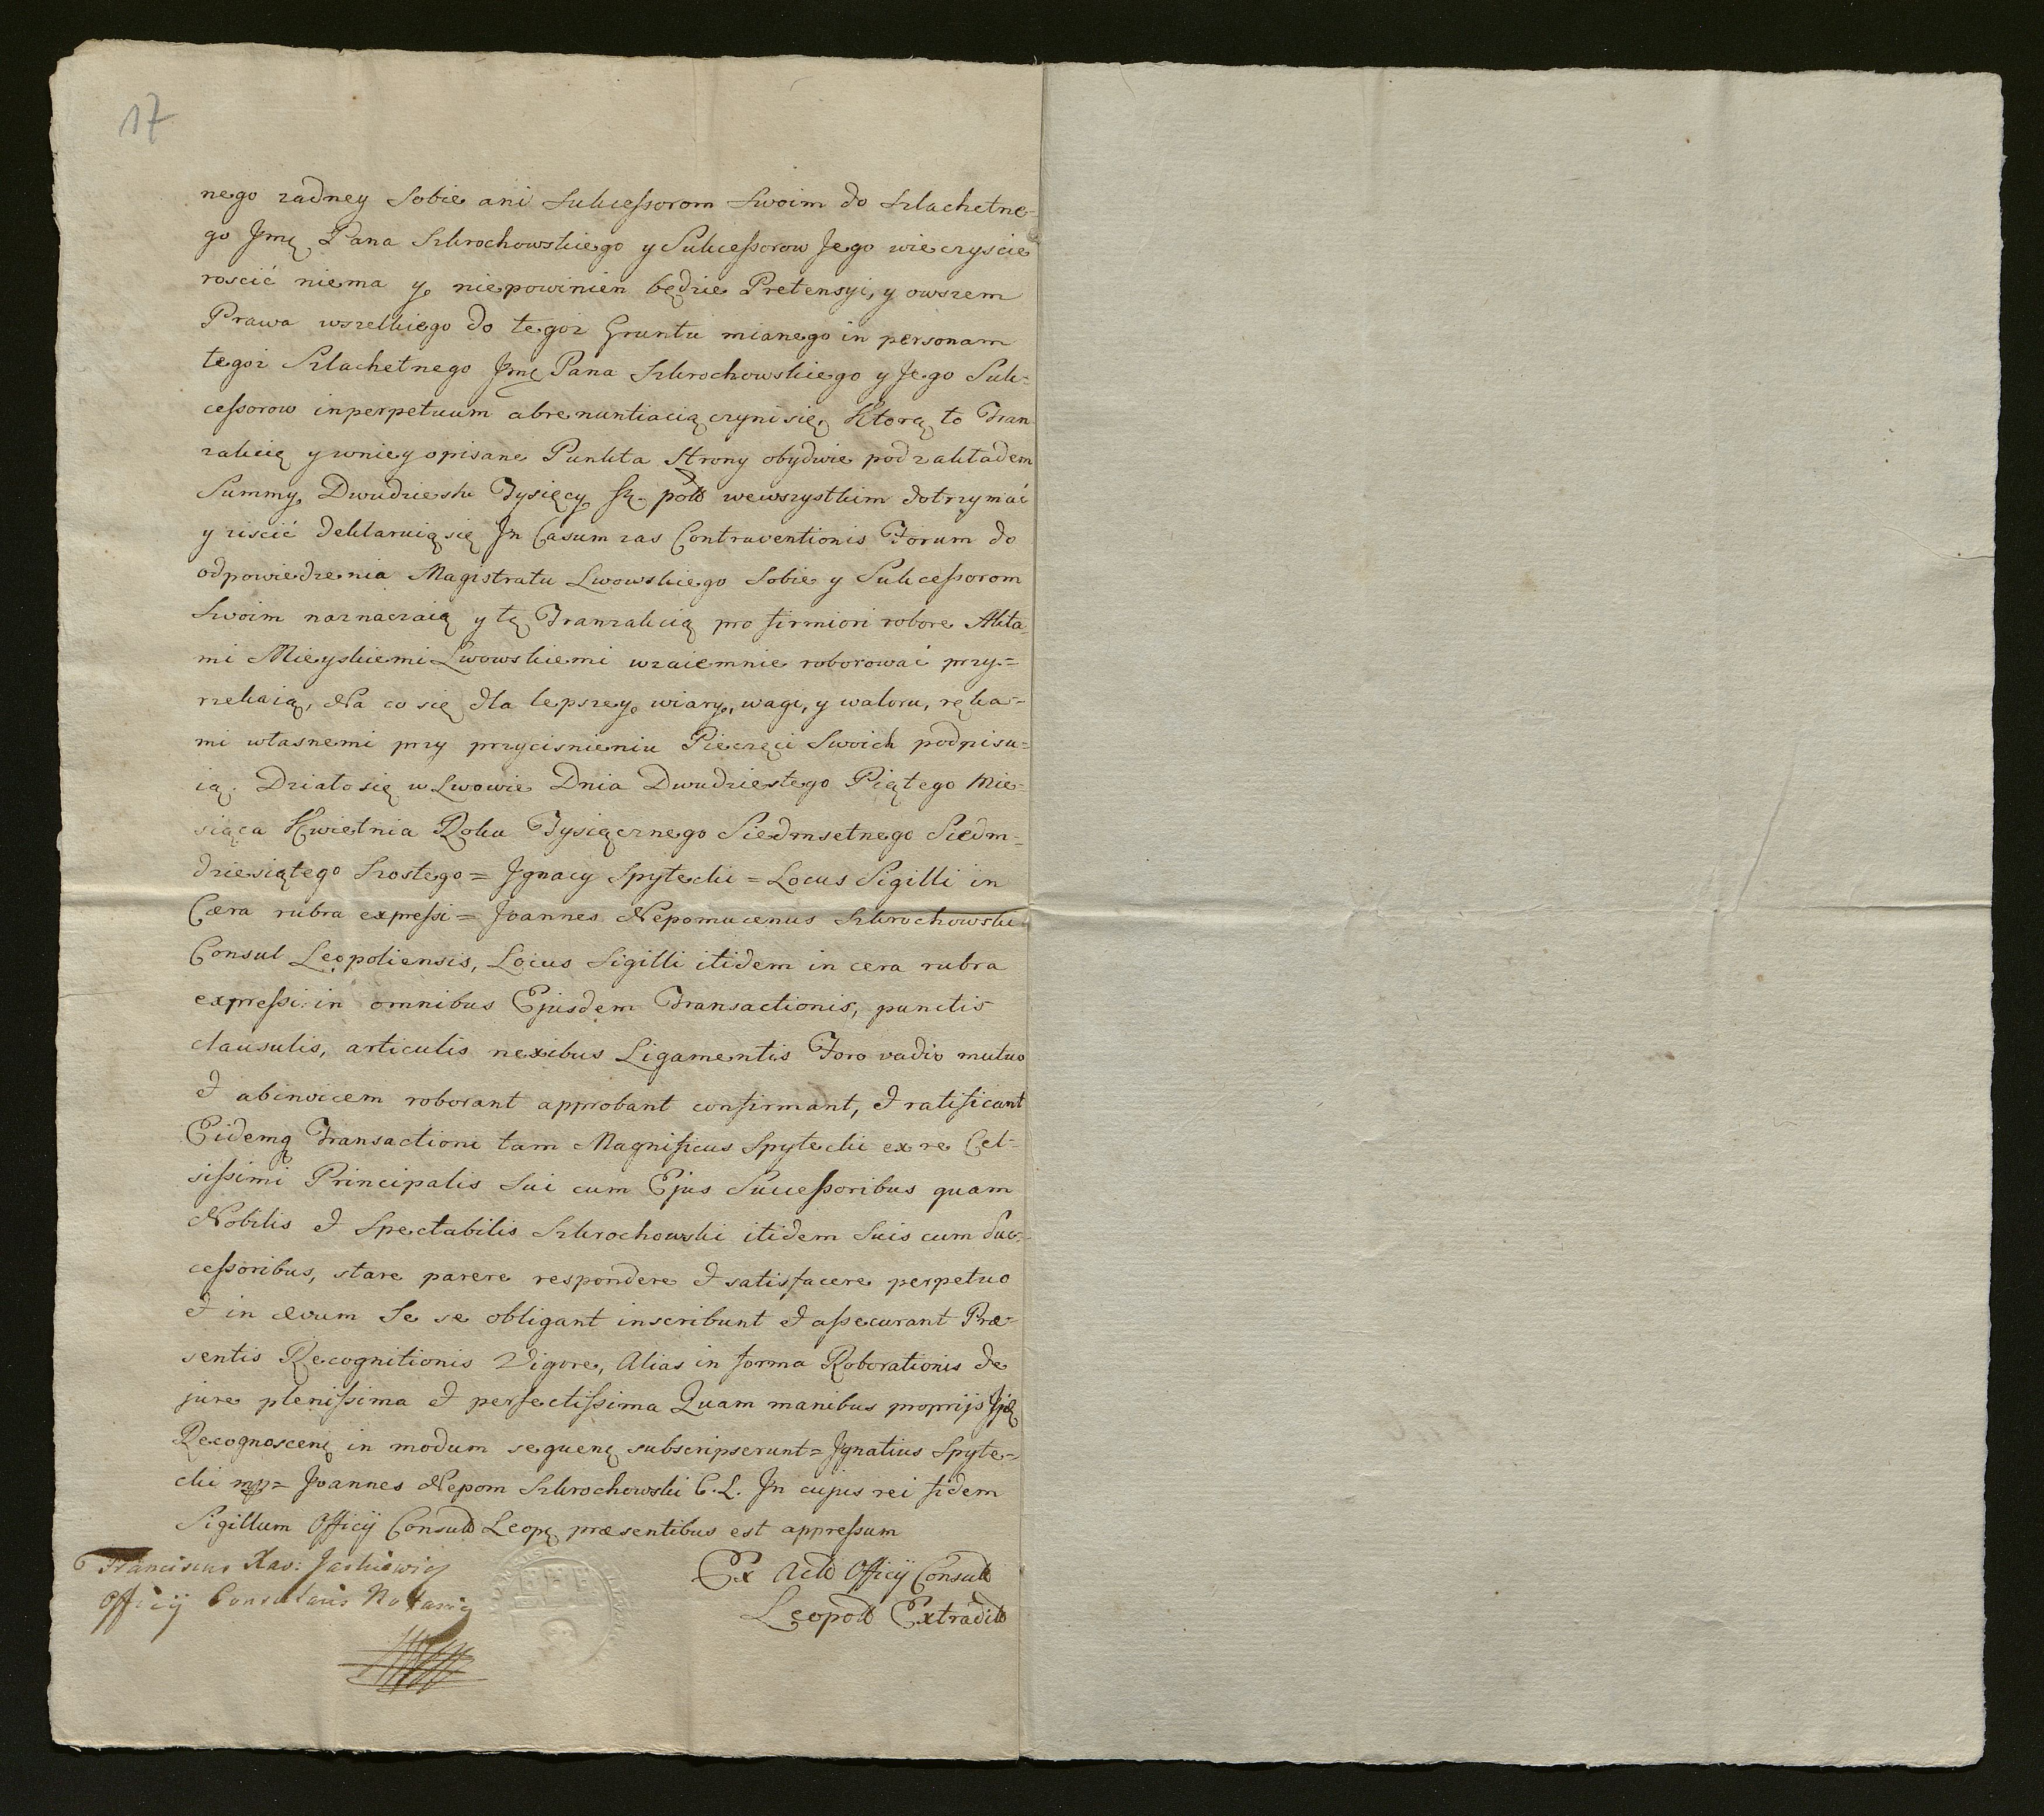 17
nego zadney Sobie ani Sukcessorom Swoim do Szlachetne-
go Jmę Pana Szkrochowskiego y Sukcessorow Jego wieczyscie
roscić niema y niepowinien będzie Pretensyi, y owszem
Prawa wszelkiego do tegoz Gruntu mianego in personam
tegoz Szlachetnego Jmę Pana Szkrochowskiego y Jego Suk-
cessorow inperpetuum abrenuntiacią czyni się, Ktorą to Tran
zakcią y wniey opisane Punkta Strony obydwie pod zakładem
Summy Dwudziestu Tysięcy wewszystkim dotrzymać
y ziścić deklaruią się Jn Casum zas Contraventionis Forum do
odpowiedzenia Magistratu Lwowskiego Sobie y Sukcessorom
Swoim naznaczaią y tę Tranzakcią pro firmiori robore Akta-
mi Mieyskiemi Lwowskiemi wzaiemnie roborować przy-
rzekaią, Na co się dla lepszey wiary, wagi, y waloru, ręka-
mi własnemi przy przycisnieniu Pieczęci Swoich podpisu-
ią. Działo się w Lwowie Dnia Dwudziestego Piątego Mie-
siąca Kwietnia Roku Tysiącznego Siedmsetnego Siedm-
dziesiątego Szostego = Jgnacy Spytecki = Locus Sigilli in
Cæra rubra expressi = Joannes Nepomucenus Szkrochowski
Consul Leopoliensis, Locus Sigilli itidem in cera rubra
expressi: in omnibus Ejusdem Transactionis, punctis
clausulis, articulis nexibus Ligamentis Foro vadio mutuo
et abinvicem roborant approbant confirmant, et ratificant
Eidemq Transactioni tam Magnificus Spytecki ex re Cel-
sissimi Principalis Sui cum Ejus Successoribus quam
Nobilis et Spectabilis Szkrochowski itidem Suis cum Suc-
cessoribus, stare parere respondere et satisfacere perpetuo
et in ævum Se se obligant inscribunt et assecurant Præ-
sentis Recognitionis Vigore, Alias in forma Roborationis de
jure plenissima et perfectissima Quam manibus proprijs
Recognoscenę in modum sequenę subscripserunt = Jgnatius Spyte-
cki mp = Joannes Nepom Szkrochowski C. L. Jn cujus rei fidem
Sigillum Officij Consul Leopę præsentibus est appressum
Franciscus Xav: Jaskiewicz
Officij Consularis Notariꝯ
Ex Act Officij Consul
Leopol Extradit